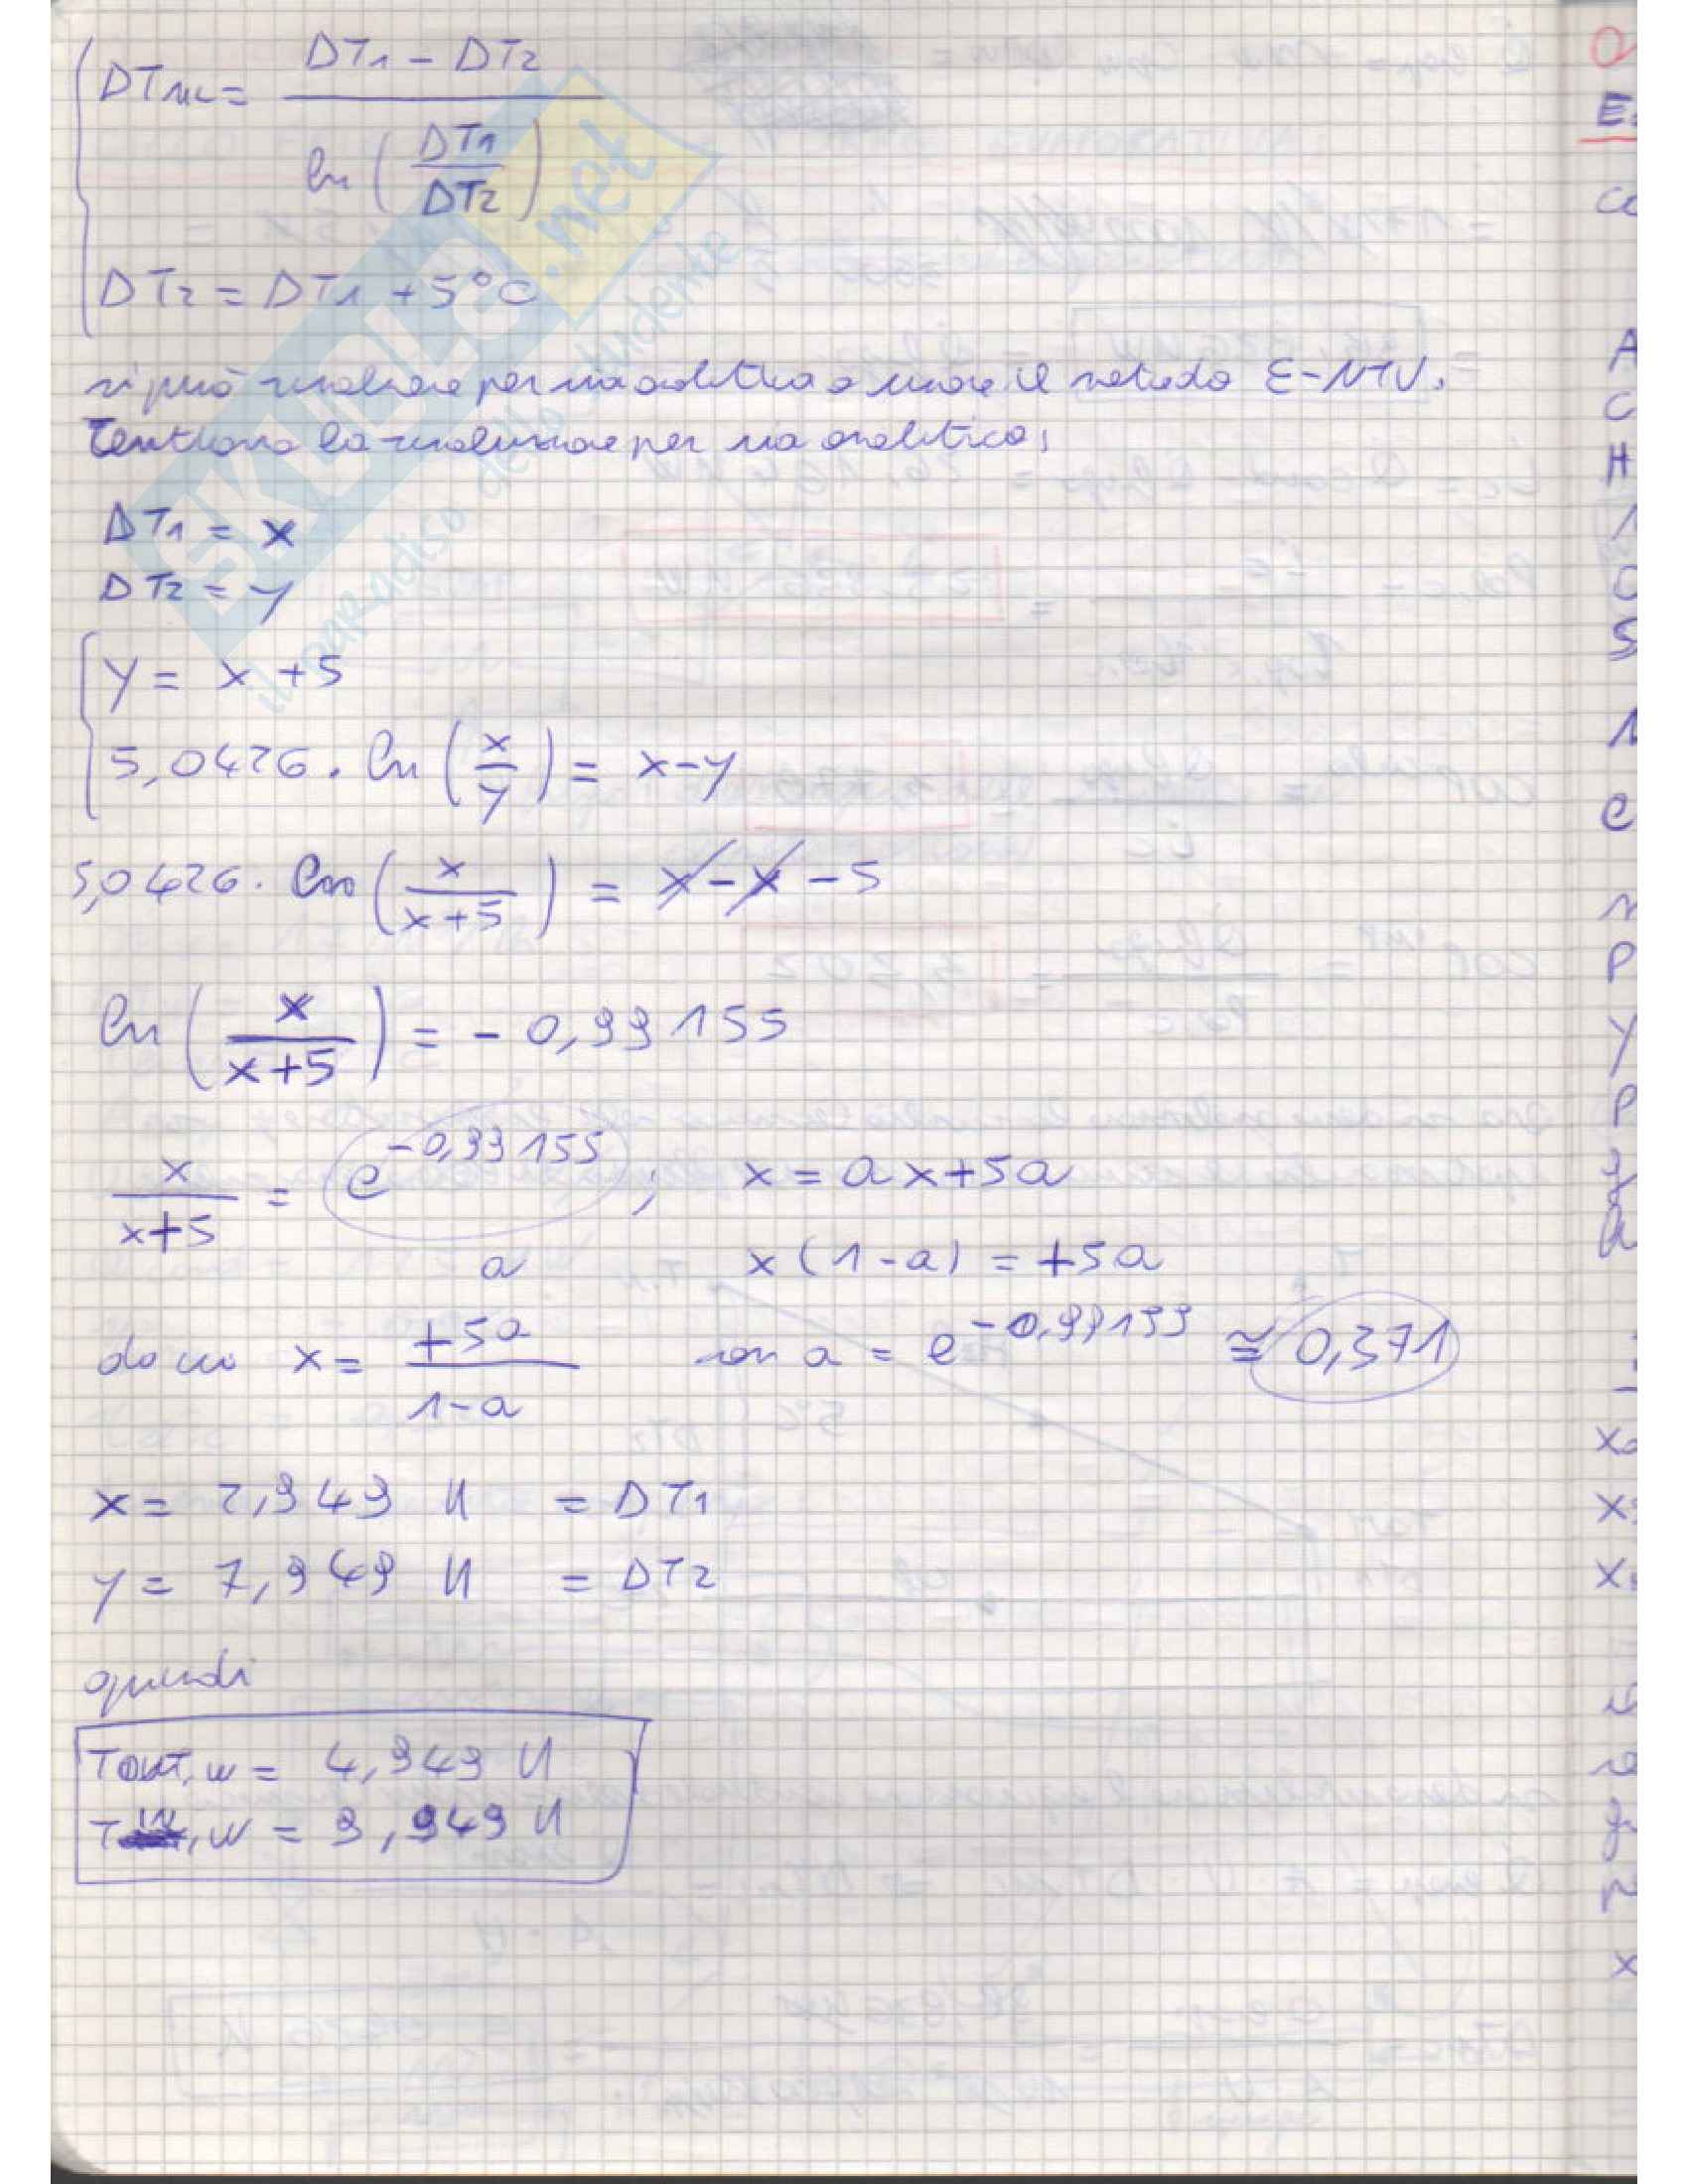 DTML = DT1 - DT2 / ln (DT1 / DT2)
DT2 = DT1 + 5°C
si può risolvere per via analitica o usare il metodo ε-NTU.
Tentiamo la risoluzione per via analitica;
DT1 = x
DT2 = y
y = x + 5
5,0426 · ln (x / y) = x - y
5,0426 · ln (x / x + 5) = x - x - 5
ln (x / x + 5) = - 0,99155
x / x + 5 = e^-0,99155 ; x = ax + 5a
a x (1 - a) = + 5a
da cui x = +5a / 1 - a con a = e^-0,99199 ≅ 0,371
x = 2,949 K = DT1
y = 7,949 K = DT2
quindi
TOUT,w = 4,949 K
TIN,w = 9,949 K
SKUOLA.net
il paradiso dello studente
E
ce
A
C
H
1
0
5
1
e
n
P
y
P
x
x